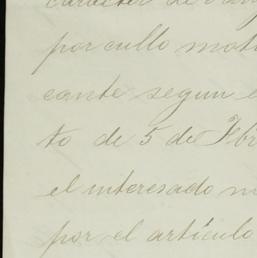 caracter de
por cullo moti
cante segun e
to de 5 de Febr
el interesado
por el artículo